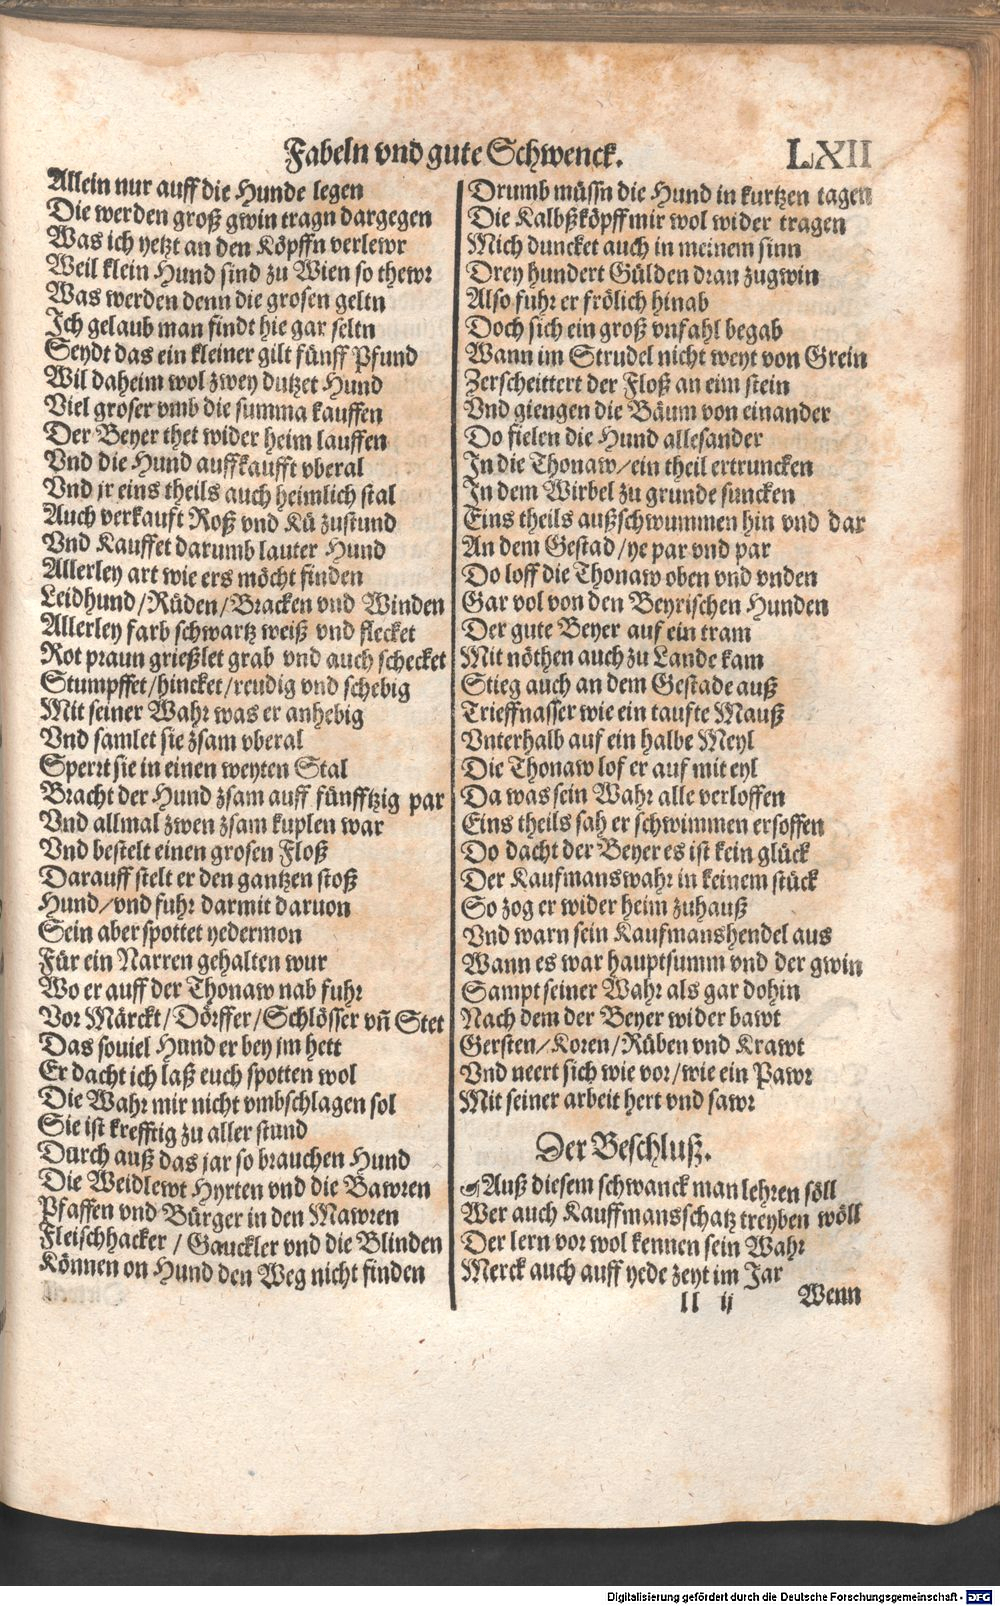 Fabeln vnd gute Schwenck. LXII
Allein nur auff die Hunde legen
Die werden groß gwin tragn dargegen
Was ich yetzt an den Köpffn verlewr
Weil klein Hund sind zu Wien so thewr
Was werden denn die grosen geltn
Ich gelaub man findt hie gar seltn
Seydt das ein kleiner gilt fünff Pfund
Wil daheim wol zwey dutzet Hund
Viel groser vmb die summa kauffen
Der Beyer thet wider heim lauffen
Vnd die Hund auffkaufft vberal
Vnd jr eins theils auch heimlich stal
Auch verkauft Roß vnd Kü zustund
Vnd Kauffet darumb lauter Hund
Allerley art wie ers möcht finden
Leidhund/Rüden/Bracken vnd Winden
Allerley farb schwartz weiß vnd flecket
Rot praun grießlet grab vnd auch schecket
Stumpffet/hincket/reudig vnd schebig
Mit seiner Wahr was er anhebig
Vnd samlet sie zsam vberal
Sperrt sie in einen weyten Stal
Bracht der Hund zsam auff fünfftzig par
Vnd allmal zwen zsam kuplen war
Vnd bestelt einen grosen Floß
Darauff stelt er den gantzen stoß
Hund/vnd fuhr darmit daruon
Sein aber spottet yedermon
Für ein Narren gehalten wur
Wo er auff der Thonaw nab fuhr
Vor Märckt/Dörffer/Schlösser vñ Stet
Das souiel Hund er bey jm hett
Er dacht ich laß euch spotten wol
Die Wahr mir nicht vmbschlagen sol
Sie ist krefftig zu aller stund
Durch auß das jar so brauchen Hund
Die Weidlewt Hyrten vnd die Bawren
Pfaffen vnd Bürger in den Mawren
Fleischhacker / Gauckler vnd die Blinden
Können on Hund den Weg nicht finden
Drumb müssn die Hund in kurtzen tagen
Die Kalbßköpff mir wol wider tragen
Mich duncket auch in meinem sinn
Drey hundert Gülden dran zugwin
Also fuhr er frölich hinab
Doch sich ein groß vnfahl begab
Wann im Strudel nicht weyt von Grein
Zerscheittert der Floß an eim stein
Vnd giengen die Bäum von einander
Do fielen die Hund allesander
In die Thonaw/ein theil ertruncken
In dem Wirbel zu grunde suncken
Eins theils außschwummen hin vnd dar
An dem Gestad/ye par vnd par
Do loff die Thonaw oben vnd vnden
Gar vol von den Beyrischen Hunden
Der gute Beyer auf ein tram
Mit nöthen auch zu Lande kam
Stieg auch an dem Gestade auß
Trieffnasser wie ein taufte Mauß
Vnterhalb auf ein halbe Meyl
Die Thonaw lof er auf mit eyl
Da was sein Wahr alle verloffen
Eins theils sah er schwimmen ersoffen
Do dacht der Beyer es ist kein glück
Der Kaufmanswahr in keinem stück
So zog er wider heim zuhauß
Vnd warn sein Kaufmanshendel aus
Wann es war hauptsumm vnd der gwin
Sampt seiner Wahr als gar dohin
Nach dem der Beyer wider bawt
Gersten/Koren/Rüben vnd Krawt
Vnd neert sich wie vor/wie ein Pawr
Mit seiner arbeit hert vnd sawr
Der Beschluß.
Auß diesem schwanck man lehren söll
Wer auch Kauffmansschatz treyben wöll
Der lern vor wol kennen sein Wahr
Merck auch auff yede zeyt im Jar
ll ij Wenn
Digitalisierung gefördert durch die Deutsche Forschungsgemeinschaft - DFG